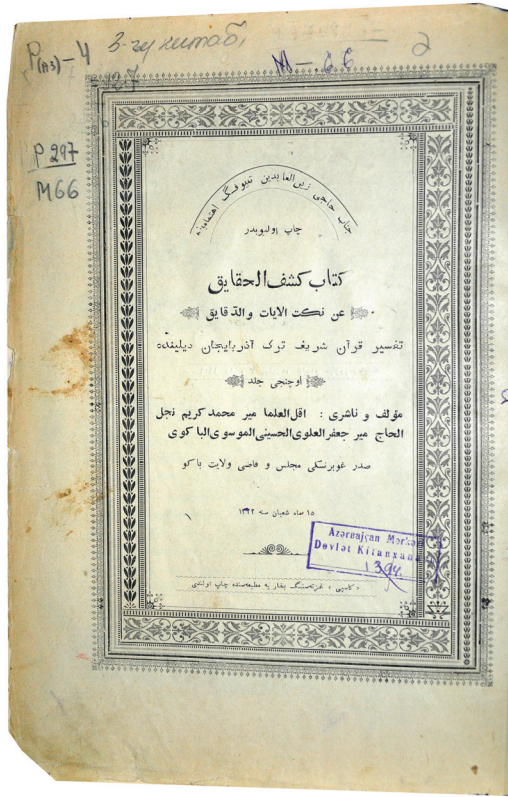 P(аз)-4 3-гу китаб,
M-66
2
P 297
M66
جناب حاجی زین‌العابدین تقیوفنگ اهتمامیله
چاپ اولنوبدر
کتاب کشف‌الحقایق
عن نکت الایات والدقایق
تفسیر قرآن شریف ترک آذربایجان دیلینده
اوچنجی جلد
مؤلف و ناشری : اقل‌العلما میر محمد کریم نجل
الحاج میر جعفر العلوی‌الحسینی‌الموسوی‌الباکوی
صدر غوبرنسکی مجلس و قاضی ولایت باکو
١٥ ماه شعبان سنه ١٣٢٢
Azərвajçan Mərkəzi
Dəvlət Kitaвxana
1394.
«کاسپی» غزته‌سننگ بخاریه مطبعه‌سنده چاپ اولندی